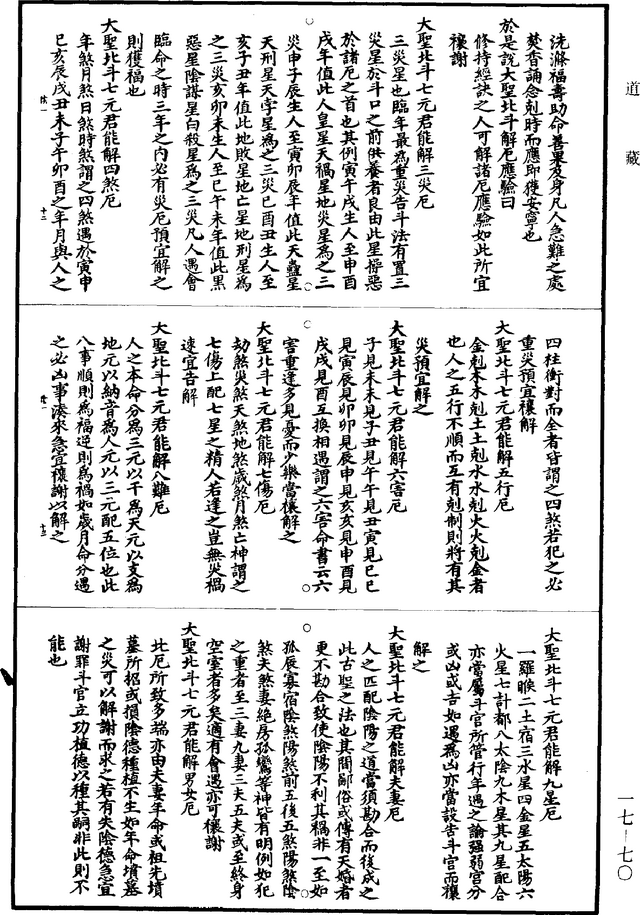 道藏
洗滌福壽助命善果及身凡人急難之處
焚香誦念剋時而應即獲安寧也
於是說大聖北斗解厄應驗曰
修持經訣之人可解諸厄應驗如此所宜
禳謝
大聖北斗七元君能解三災厄
三災星也臨年最為重災告斗法有置三
災星於斗口之前供養者良由此星掃惡
於諸厄之首也其例寅午戌生人至申酉
戌年值此人皇星天禍星地災星為之三
災申子辰生人至寅卯辰年值此天蠱星
天刑星天孛星為之三災巳酉丑生人至
亥子丑年值此地敗星地亡星地刑星為
之三災亥卯未生人至巳午未年值此黑
惡星陰謀星白殺星為之三災凡人遇會
臨命之時三年之內必有災厄預宜解之
則獲福也
大聖北斗七元君能解四煞厄
年煞月煞日煞時煞謂之四煞遇於寅申
巳亥辰戌丑未子午卯酉之年月與人之
四柱衝對而全者皆謂之四煞若犯之必
重災預宜禳解
大聖北斗七元君能解五行厄
金剋木木剋土土剋水水剋火火剋金者
也人之五行不順而互有剋制則將有其
災預宜解之
大聖北斗七元君能解六害厄
子見未未見子丑見午午見丑寅見巳巳
見寅辰見卯卯見辰申見亥亥見申酉見
戌戌見酉互換相遇謂之六害命書云六
害重逢多見憂而少樂當禳解之
大聖北斗七元君能解七傷厄
劫煞災煞天煞地煞歲煞月煞亡神謂之
七傷上配七星之精人若逢之豈無災禍
速宜告解
大聖北斗七元君能解八難厄
人之本命分為三元以干為天元以支為
地元以納音為人元以三元配五位也此
八事順則為福逆則為禍如歲月命分遇
之必凶事湊來急宜禳謝以解之
大聖北斗七元君能解九星厄
一羅睺二土宿三水星四金星五太陽六
火星七計都八太陰九木星其九星配合
亦當屬斗官所管行年遇之論強弱宮分
或凶或吉如遇為凶亦當設告斗官而禳
解之
大聖北斗七元君能解夫妻厄
人之匹配陰陽之道當須勘合而後成之
此古聖之法也其間鄙俗或傳有天婚者
更不勘合致使陰陽不利其禍非一至如
孤辰寡宿陰煞陽煞前五後五煞陽煞陰
煞夫煞妻絕房孤鸞等神皆有明例如犯
之重者至三妻九妻三夫五夫或至終身
空室者多矣適有會遇亦可禳謝
大聖北斗七元君能解男女厄
此厄所致多端亦由夫妻年命或祖先墳
墓所招或損陰德種植不生如年命墳墓
之災可以解謝而求之若有失陰德急宜
謝罪斗官立功植德以種其嗣非此則不
能也
一七—七〇